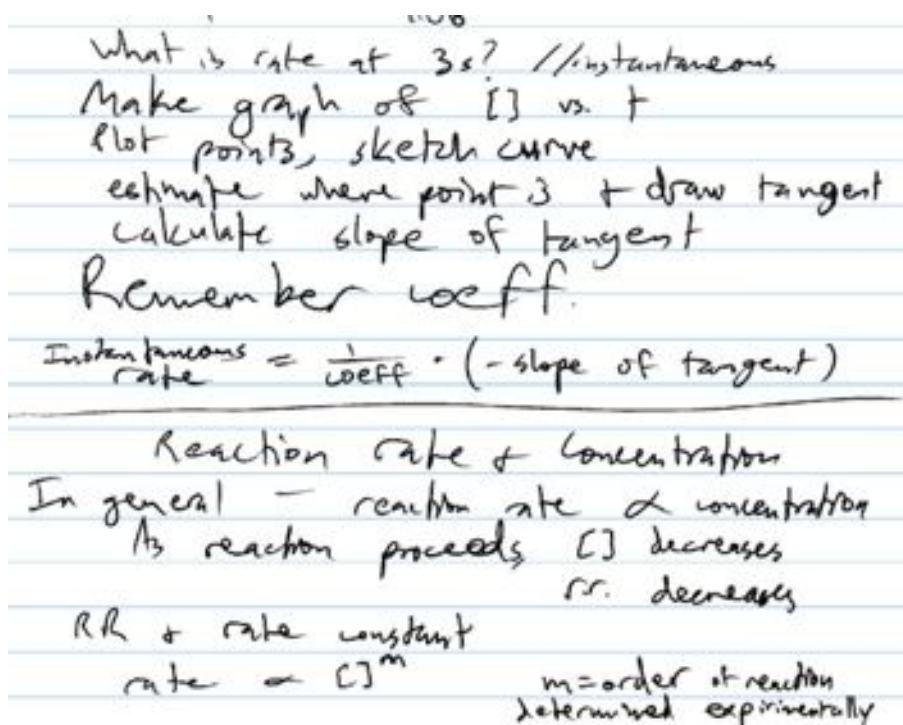 What is rate at 3s? //instantaneous
Make graph of [] vs. t
Plot points, sketch curve
estimate where point is + draw tangent
calculate slope of tangent
Remember coeff.
Instantaneous rate = 1/coeff · (-slope of tangent)
Reaction rate & concentration
In general – reaction rate ∝ concentration
As reaction proceeds [] decreases
r.r. decreases
RR & rate constant
rate ∝ []^m
m = order of reaction
determined expirimentally